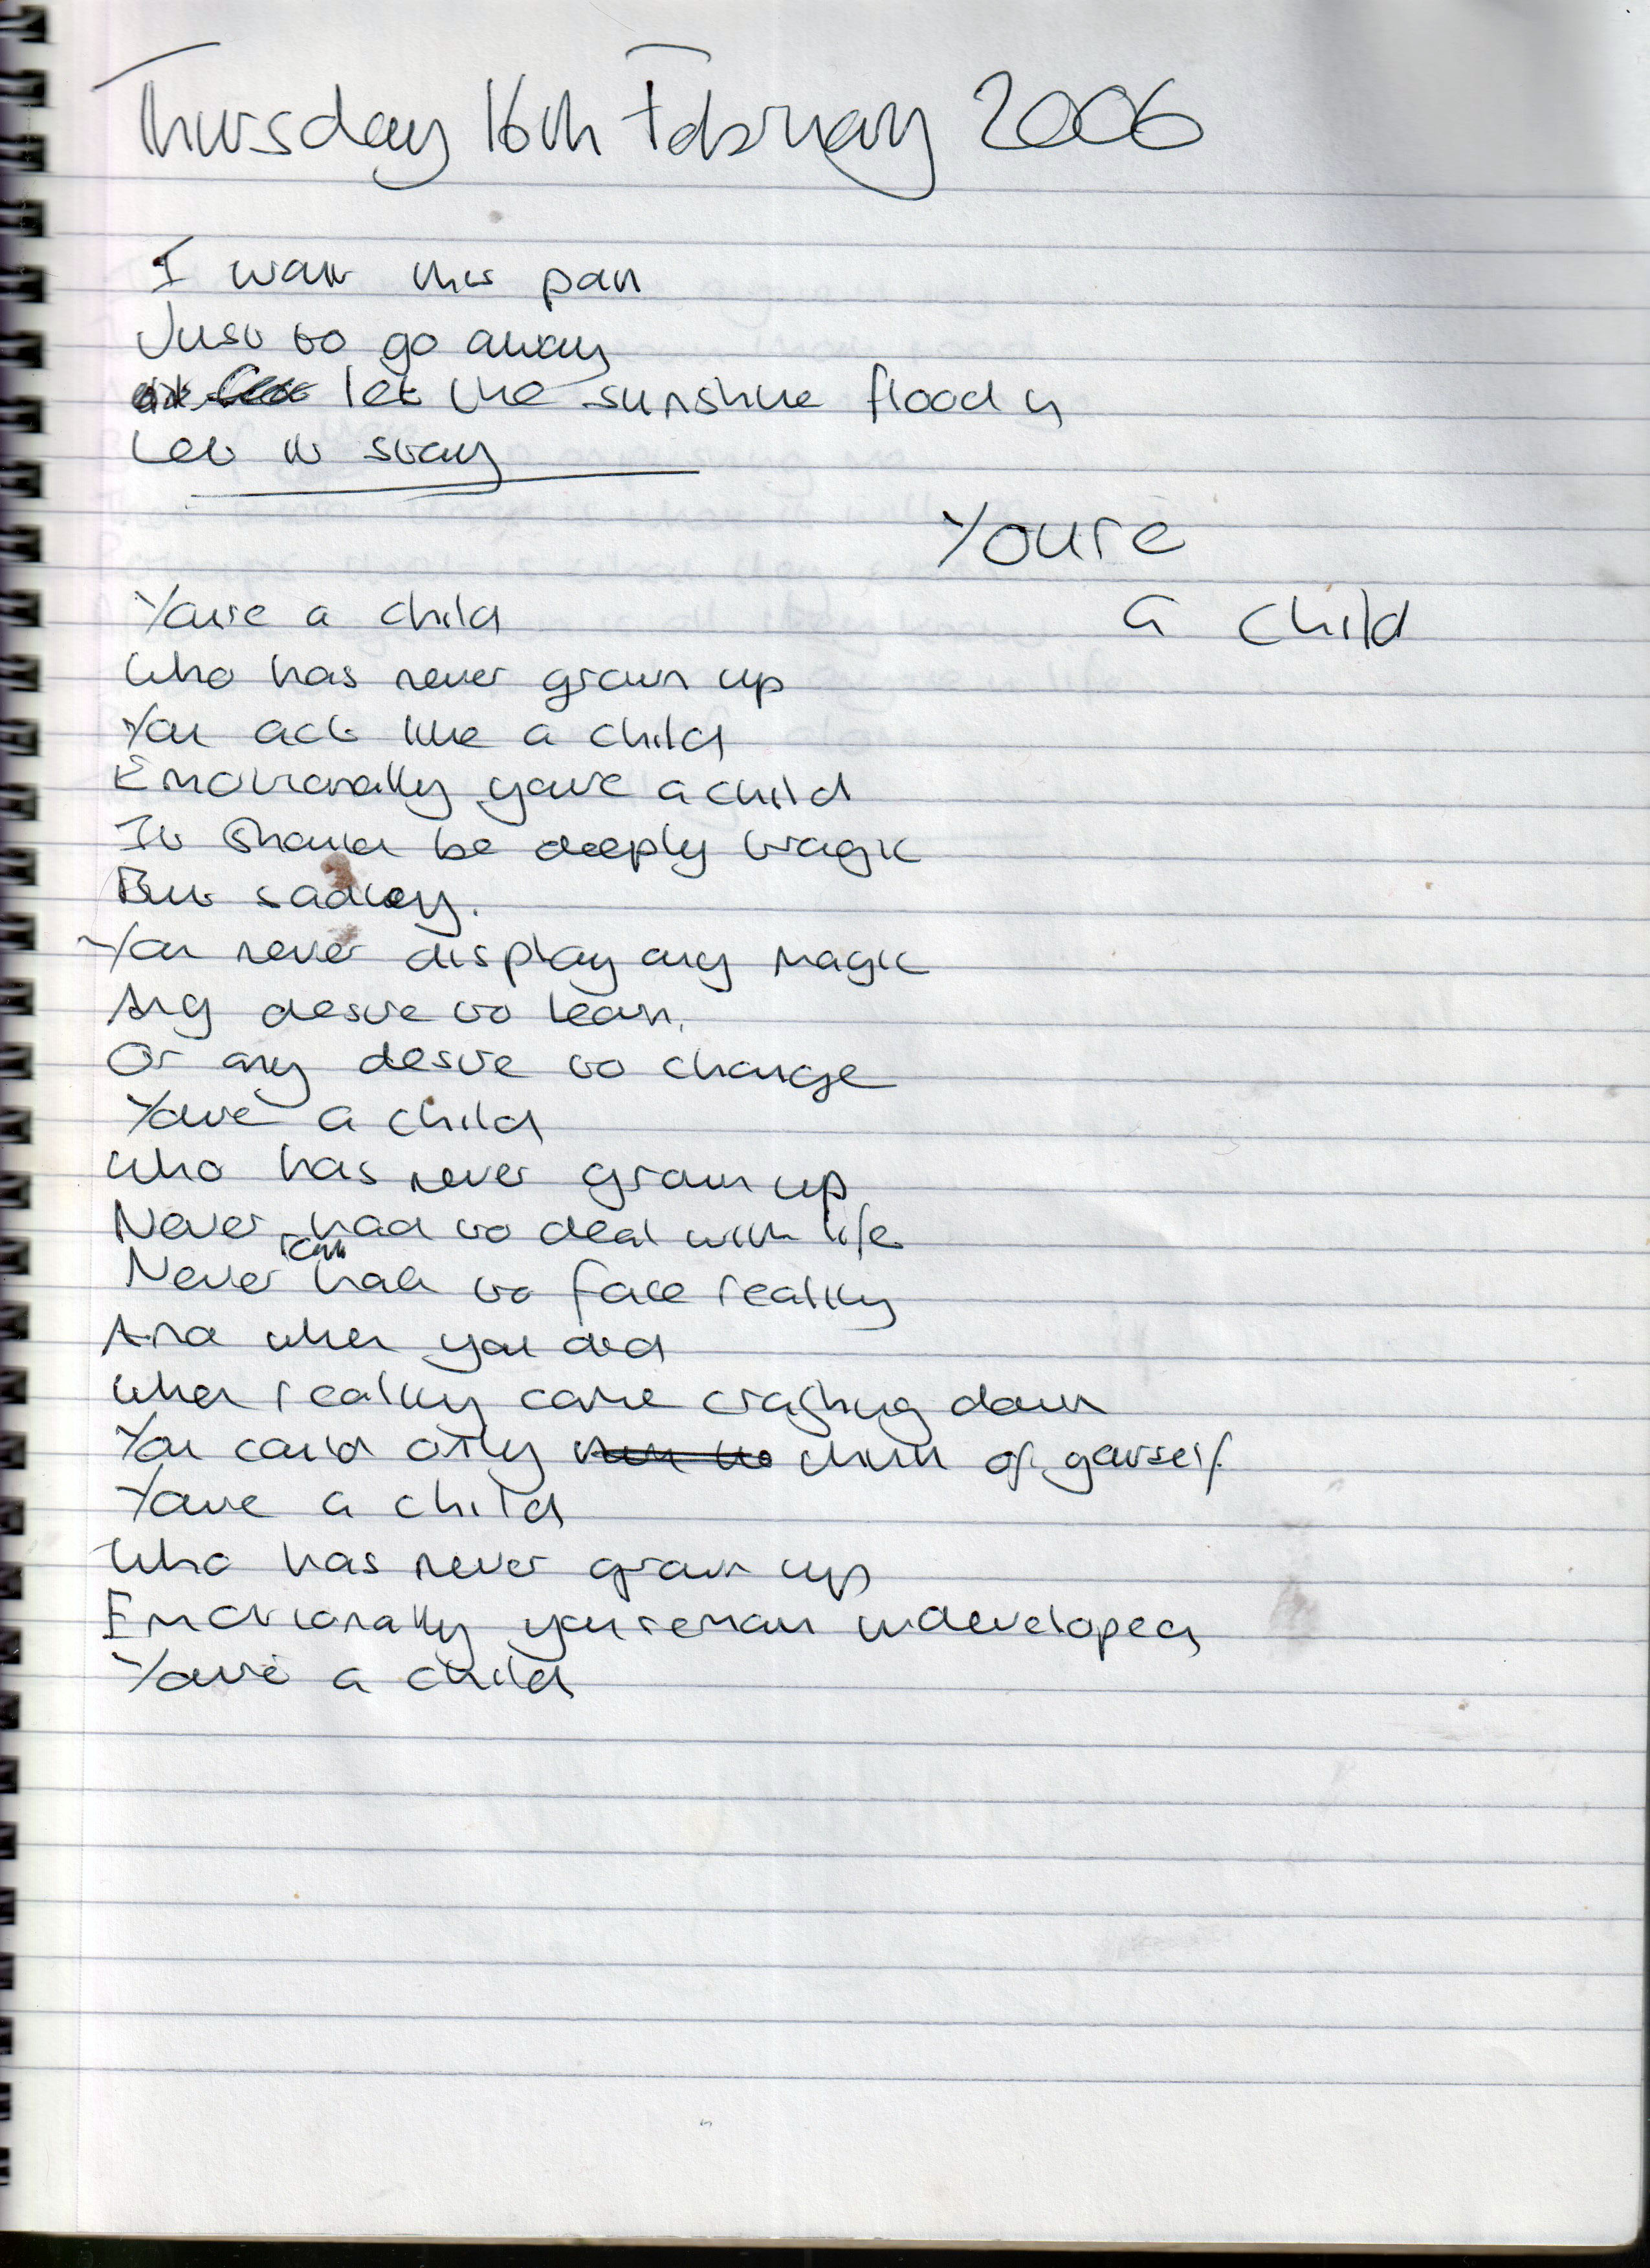 Thursday 16th February 2006
I want this pain
Just to go away
let the sunshine flood in
Let it stay
Youre
a child
Youre a child
Who has never grown up
You act like a child
Emotionally youre a child
It should be deeply tragic
But sadley.
You never display any magic
Any desire to learn.
Or any desire to change
Youre a child
Who has never grown up
Never had to deal with life
Never had to face reality
And when you did
When reality came crashing down
You could only think of yourself
Youre a child
Who has never grown up
Emotionally you remain undeveloped
Youre a child